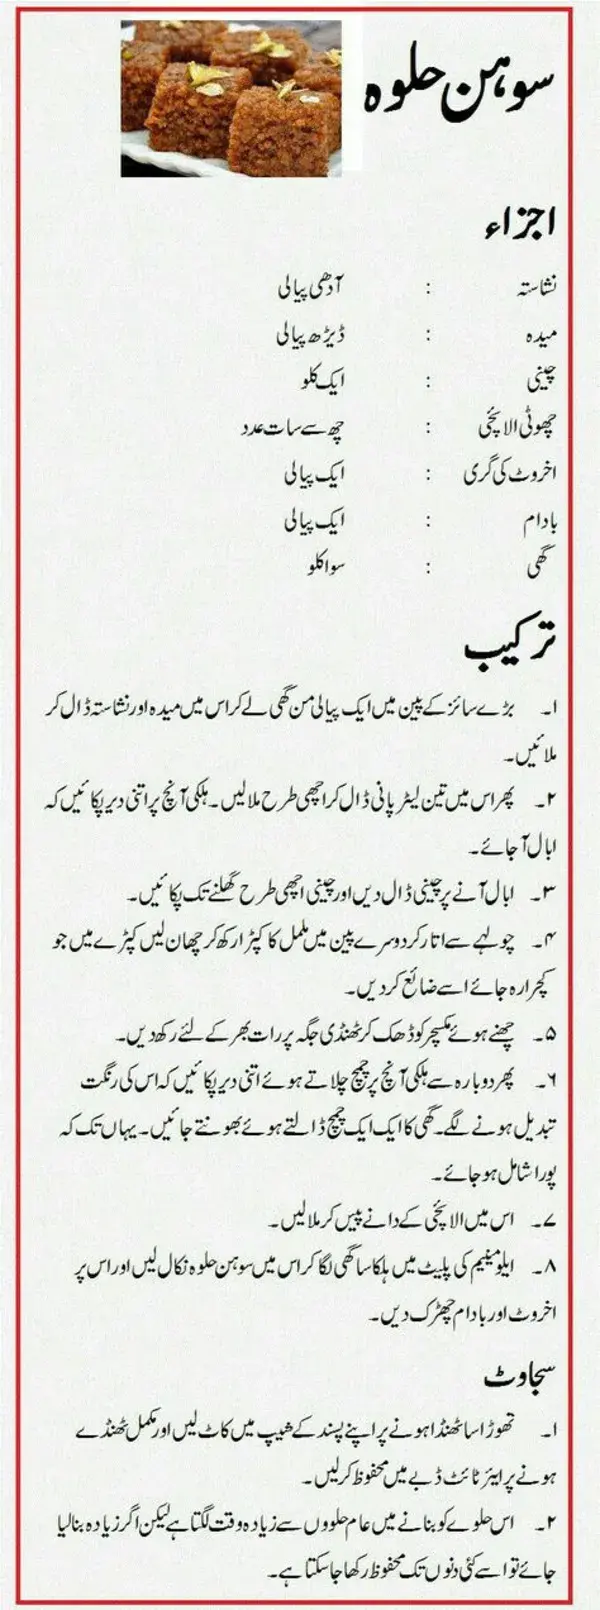 سوہن حلوہ
اجزاء
نشاستہ : آدھی پیالی
میدہ : ڈیڑھ پیالی
چینی : ایک کلو
چھوٹی الائچی : چھ سے سات عدد
اخروٹ کی گری : ایک پیالی
بادام : ایک پیالی
گھی : سوا کلو
ترکیب
۱۔ بڑے سائز کے پین میں ایک پیالی من گھی لے کر اس میں میدہ اور نشاستہ ڈال کر
ملائیں۔
۲۔ پھر اس میں تین لیٹر پانی ڈال کر اچھی طرح ملا لیں۔ ہلکی آنچ پر اتنی دیر پکائیں کہ
ابال آ جائے۔
۳۔ ابال آنے پر چینی ڈال دیں اور چینی اچھی طرح گھلنے تک پکائیں۔
۴۔ چولہے سے اتار کر دوسرے پین میں ململ کا کپڑا رکھ کر چھان لیں کپڑے میں جو
کچرا رہ جائے اسے ضائع کر دیں۔
۵۔ چھنے ہوئے مکسچر کو ڈھک کر ٹھنڈی جگہ پر رات بھر کے لئے رکھ دیں۔
۶۔ پھر دوبارہ سے ہلکی آنچ پر چمچ چلاتے ہوئے اتنی دیر پکائیں کہ اس کی رنگت
تبدیل ہونے لگے۔ گھی کا ایک ایک چمچ ڈالتے ہوئے بھونتے جائیں۔ یہاں تک کہ
پورا شامل ہو جائے۔
۷۔ اس میں الائچی کے دانے پیس کر ملا لیں۔
۸۔ ایلومینیم کی پلیٹ میں ہلکا سا گھی لگا کر اس میں سوہن حلوہ نکال لیں اور اس پر
اخروٹ اور بادام چھڑک دیں۔
سجاوٹ
۱۔ تھوڑا سا ٹھنڈا ہونے پر اپنے پسند کے شیپ میں کاٹ لیں اور مکمل ٹھنڈے
ہونے پر ایئر ٹائٹ ڈبے میں محفوظ کر لیں۔
۲۔ اس حلوے کو بنانے میں عام حلووں سے زیادہ وقت لگتا ہے لیکن اگر زیادہ بنا لیا
جائے تو اسے کئی دنوں تک محفوظ رکھا جا سکتا ہے۔